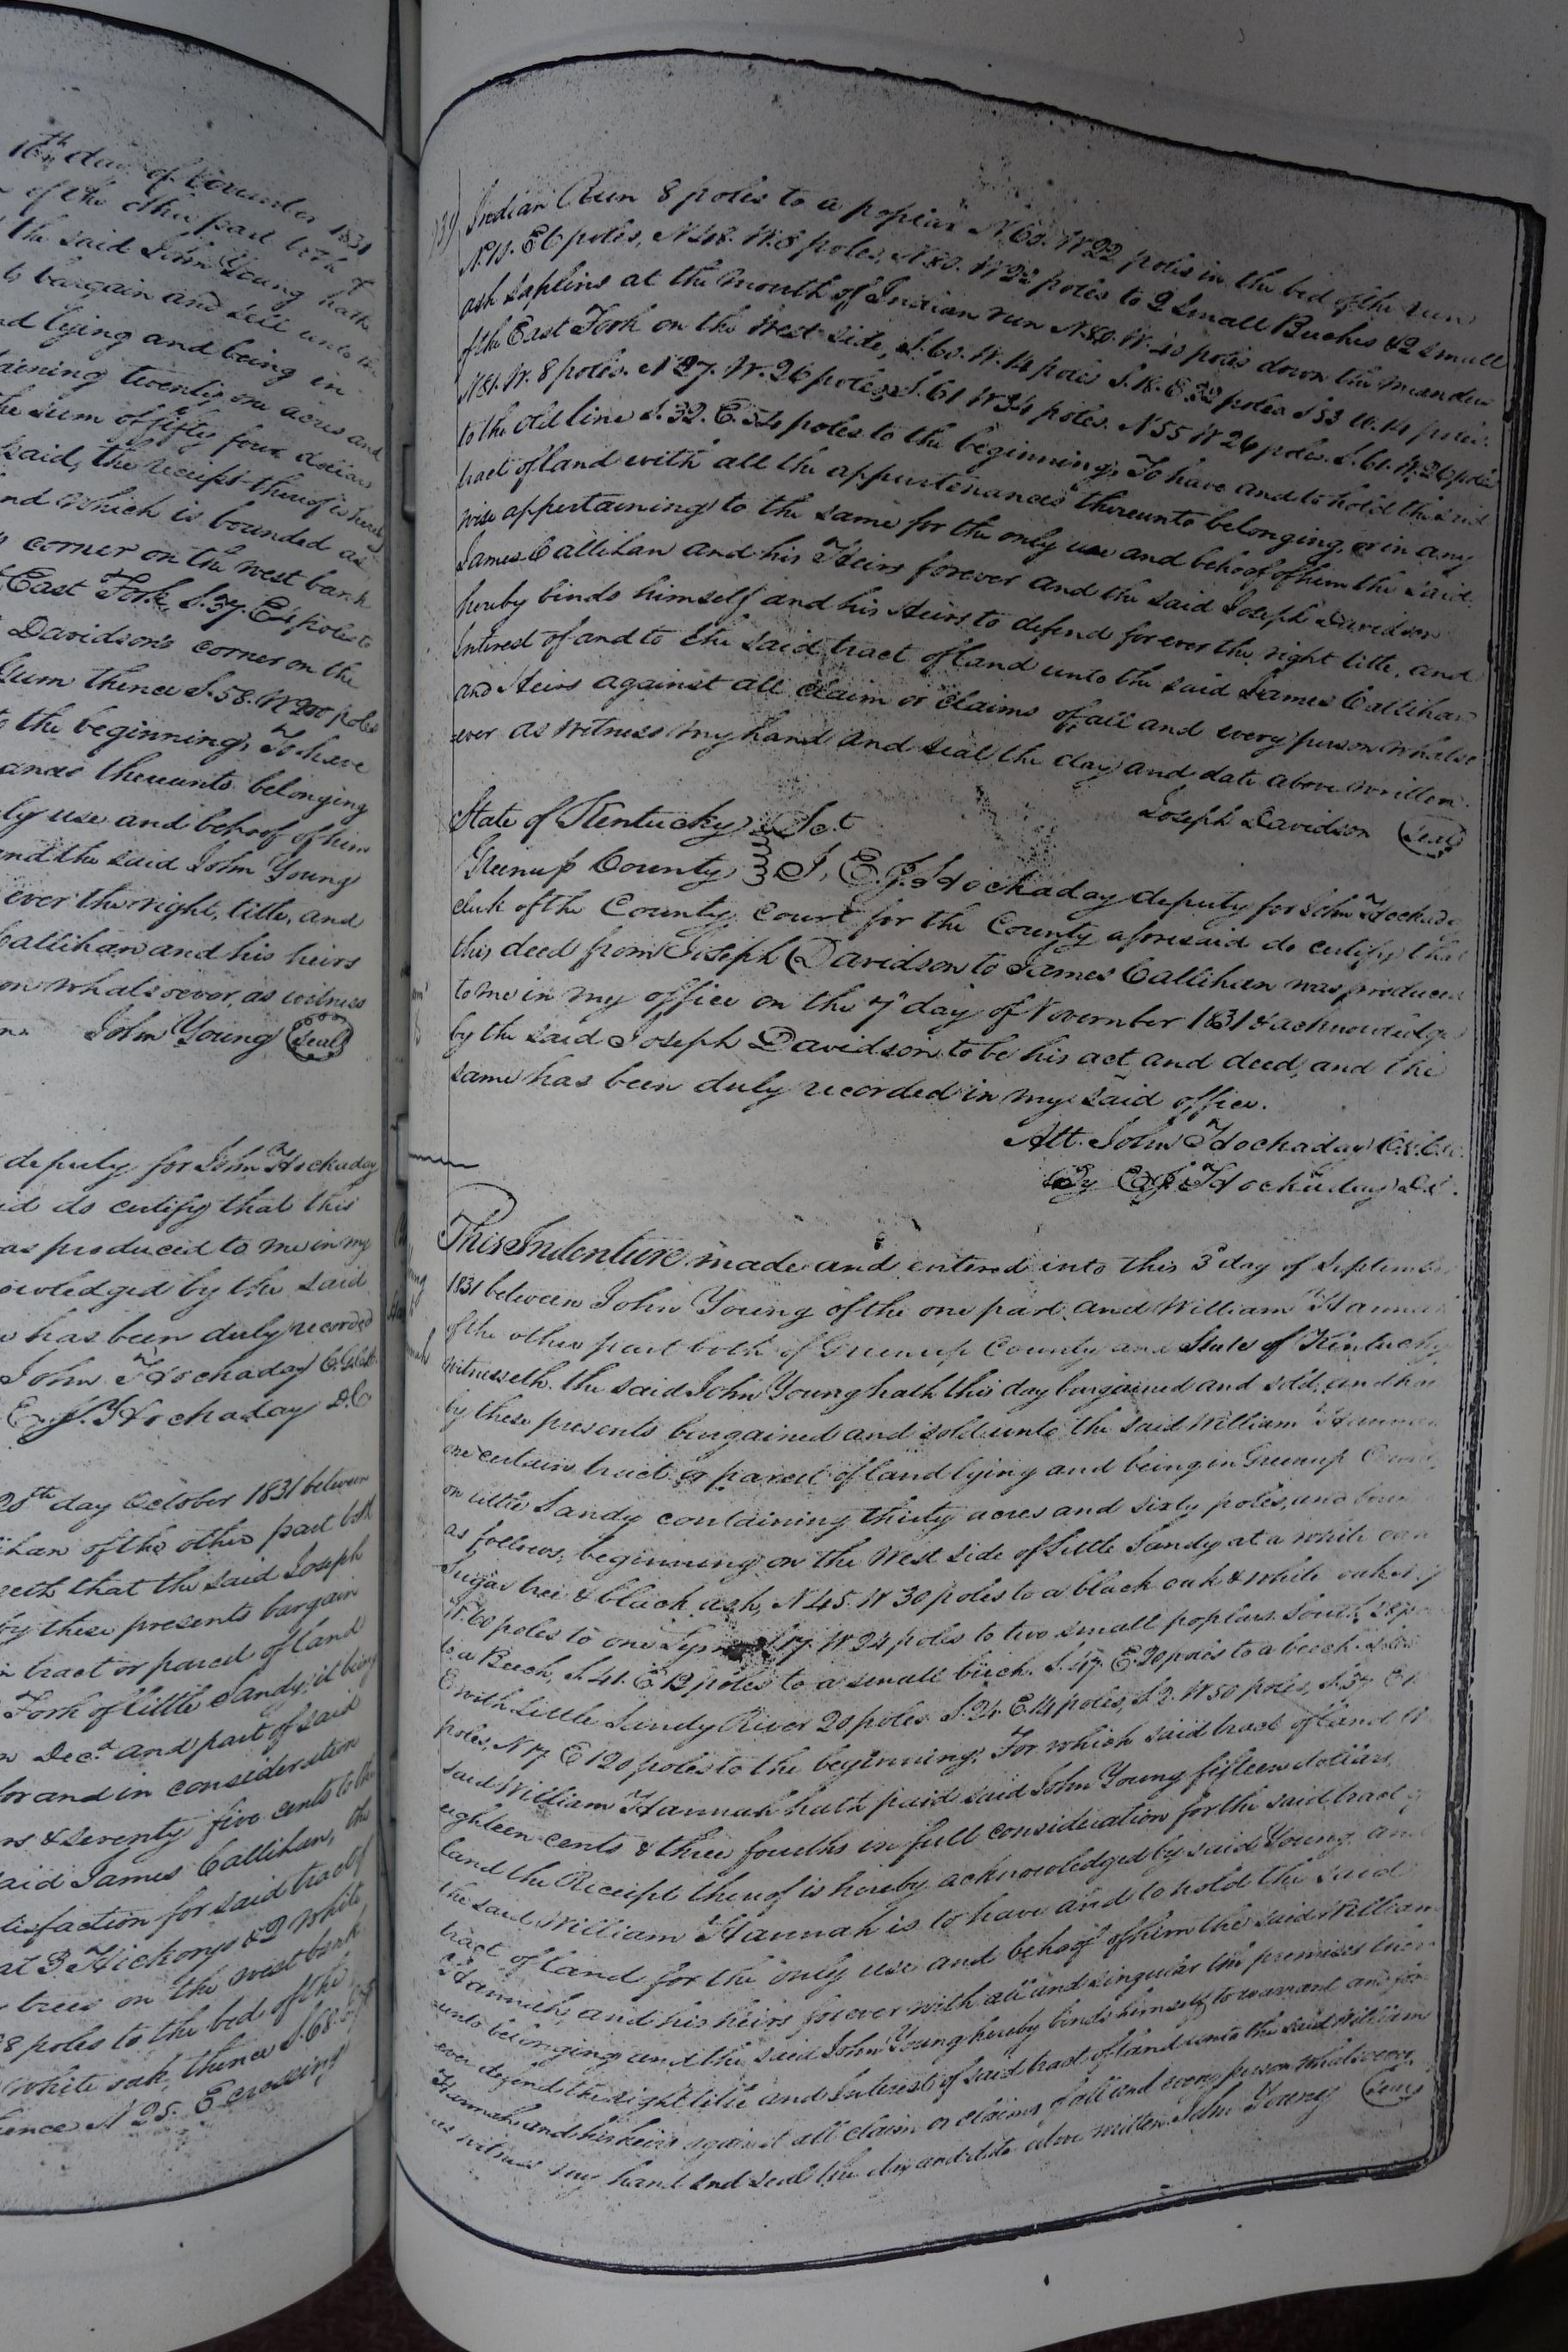 16th day of November 1831
of the other part both of
the said John Young hath
to bargain and sell unto the
nd lying and being in
taining twenty one acres and
he sum of fifty four dollars
said, the receipt thereof is hereby
nd which is bounded as
corner on the west bank
East Fork S. 37. E 4 poles to
Davidson's corner on the
Gum thence S. 58. W poles
to the beginning, To have
ances thereunto belonging
ly use and behoof of him
and the said John Young
ever the right, title, and
Callihan and his heirs
on whatsoever, as witness
John Young (Seal)
deputy for John Hockaday
id do certify that this
as produced to me in my
owledged by the said
has been duly recorded
John Hockaday C.G.C.C.
E. J. Hockaday D.C.
20th day October 1831 between
ihan of the other part both
seth that the said Joseph
by these presents bargain
n tract or parcel of land
Fork of little Sandy, it being
n Dec.d and part of said
for and in consideration
rs & seventy five cents to the
said James Callihan, the
tisfaction for said tract of
at 3 Hickorys & 2 White
trees on the west bank
8 poles to the bed of the
White oak, thence S. 68.
hence N 25. E crossing
Indian Run 8 poles to a poplar N 60. W 22 poles in the bed of the run
N. 11. E 6 poles, N 48. W. 8 poles, N. 80. W 22 poles to 2 Small Buches & 2 small
ash saplins at the mouth of Indian run N 80. W. 40 poles down the meanders
of the East Fork on the West side, S. 60. W. 14 poles S. 18. E 32 poles S 53 W. 14 poles.
N 81. W. 8 poles. N 27. W. 26 poles, S. 61 W 34 poles. N 55 W 26 poles. S. 61. W. 26 poles
to the old line S. 32. E. 54 poles to the beginning, To have and to hold the said
tract of land with all the appurtenances thereunto belonging, or in any
wise appertaining to the same for the only use and behoof of him the said
James Callihan and his Heirs forever and the said Joseph Davidson
hereby binds himself and his Heirs to defend forever the right title, and
Interest of and to the said tract of land unto the said James Callihan
and Heirs against all claim or claims of all and every person whatso
ever as witness my hand and seal the day and date above written.
Joseph Davidson (Seal)
State of Kentucky Sct
Greenup County I, E. J. Hockaday deputy for John Hockaday
clerk of the County Court for the County aforesaid do certify that
this deed from Joseph Davidson to James Callihan was produced
to me in my office on the 7th day of November 1831 & acknowledge
by the said Joseph Davidson to be his act and deed, and the
same has been duly recorded in my said office.
Att. John Hockaday C.G.C.C.
By E. J. Hockaday D.C.
This Indenture made and entered into this 3d day of September
1831 between John Young of the one part and William Hannah
of the other part both of Greenup County and State of Kentucky
witnesseth. the said John Young hath this day bargained and sold, and has
by these presents bargained and sold unto the said William Hannah
one certain tract or parcel of land lying and being in Greenup County
on little Sandy containing thirty acres and sixty poles, and bound
as follows, beginning on the West side of Little Sandy at a white oak
Sugar tree & black ash, N 45. W 30 poles to a black oak & white oak
W. 60 poles to one Lynn S 17. W 24 poles to two small poplars South 28 po
to a Beech, S. 41. E 12 poles to a small beech. S. 47. E 20 poles to a beech
E with Little Sandy River 20 poles S. 24 E. 14 poles, S. 2. W 50 poles, S. 37 E 1
poles, N 17 E 120 poles to the beginning; For which said tract of land the
said William Hannah hath paid said John Young fifteen dollars,
eighteen cents & three fourths in full consideration for the said tract of
land the Receipt thereof is hereby acknowledged by said Young and
the said William Hannah is to have and to hold the said
tract of land for the only use and behoof of him the said William
Hannah, and his heirs forever with all and singular the premises there
unto belonging and the said John Young hereby binds himself to warrant and for
ever defend the right title and Interest of said tract of land unto the said William
Hannah and his heirs against all claim or claims of all and every person whatsoever
as witness my hand and seal the day and date above written. John Young (Seal)